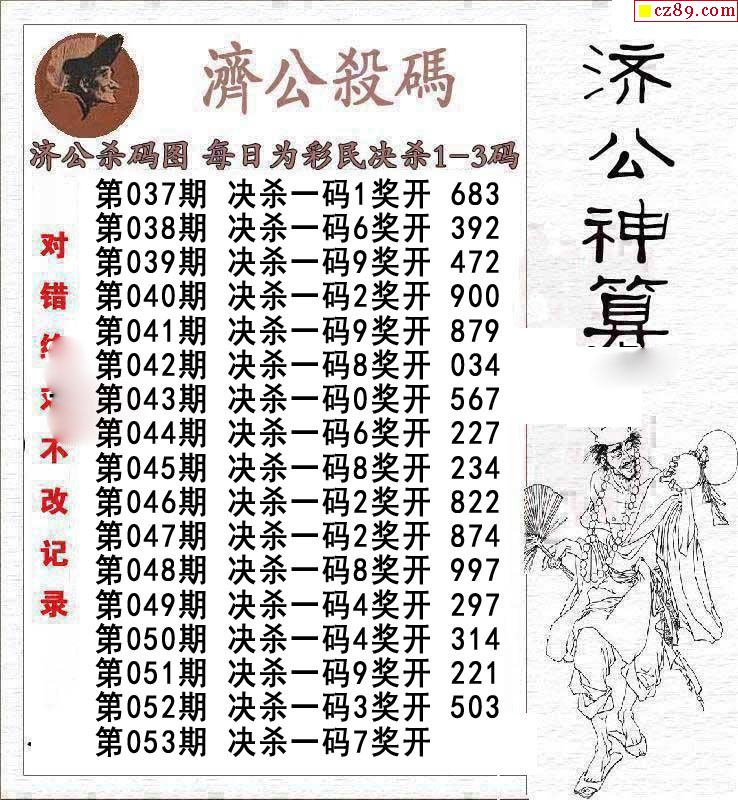 cz89.com
濟公殺碼
济公杀码图 每日为彩民决杀1-3码
第037期 决杀一码1奖开 683
第038期 决杀一码6奖开 392
第039期 决杀一码9奖开 472
第040期 决杀一码2奖开 900
第041期 决杀一码9奖开 879
第042期 决杀一码8奖开 034
第043期 决杀一码0奖开 567
第044期 决杀一码6奖开 227
第045期 决杀一码8奖开 234
第046期 决杀一码2奖开 822
第047期 决杀一码2奖开 874
第048期 决杀一码8奖开 997
第049期 决杀一码4奖开 297
第050期 决杀一码4奖开 314
第051期 决杀一码9奖开 221
第052期 决杀一码3奖开 503
第053期 决杀一码7奖开
对错不改记录
济公神算